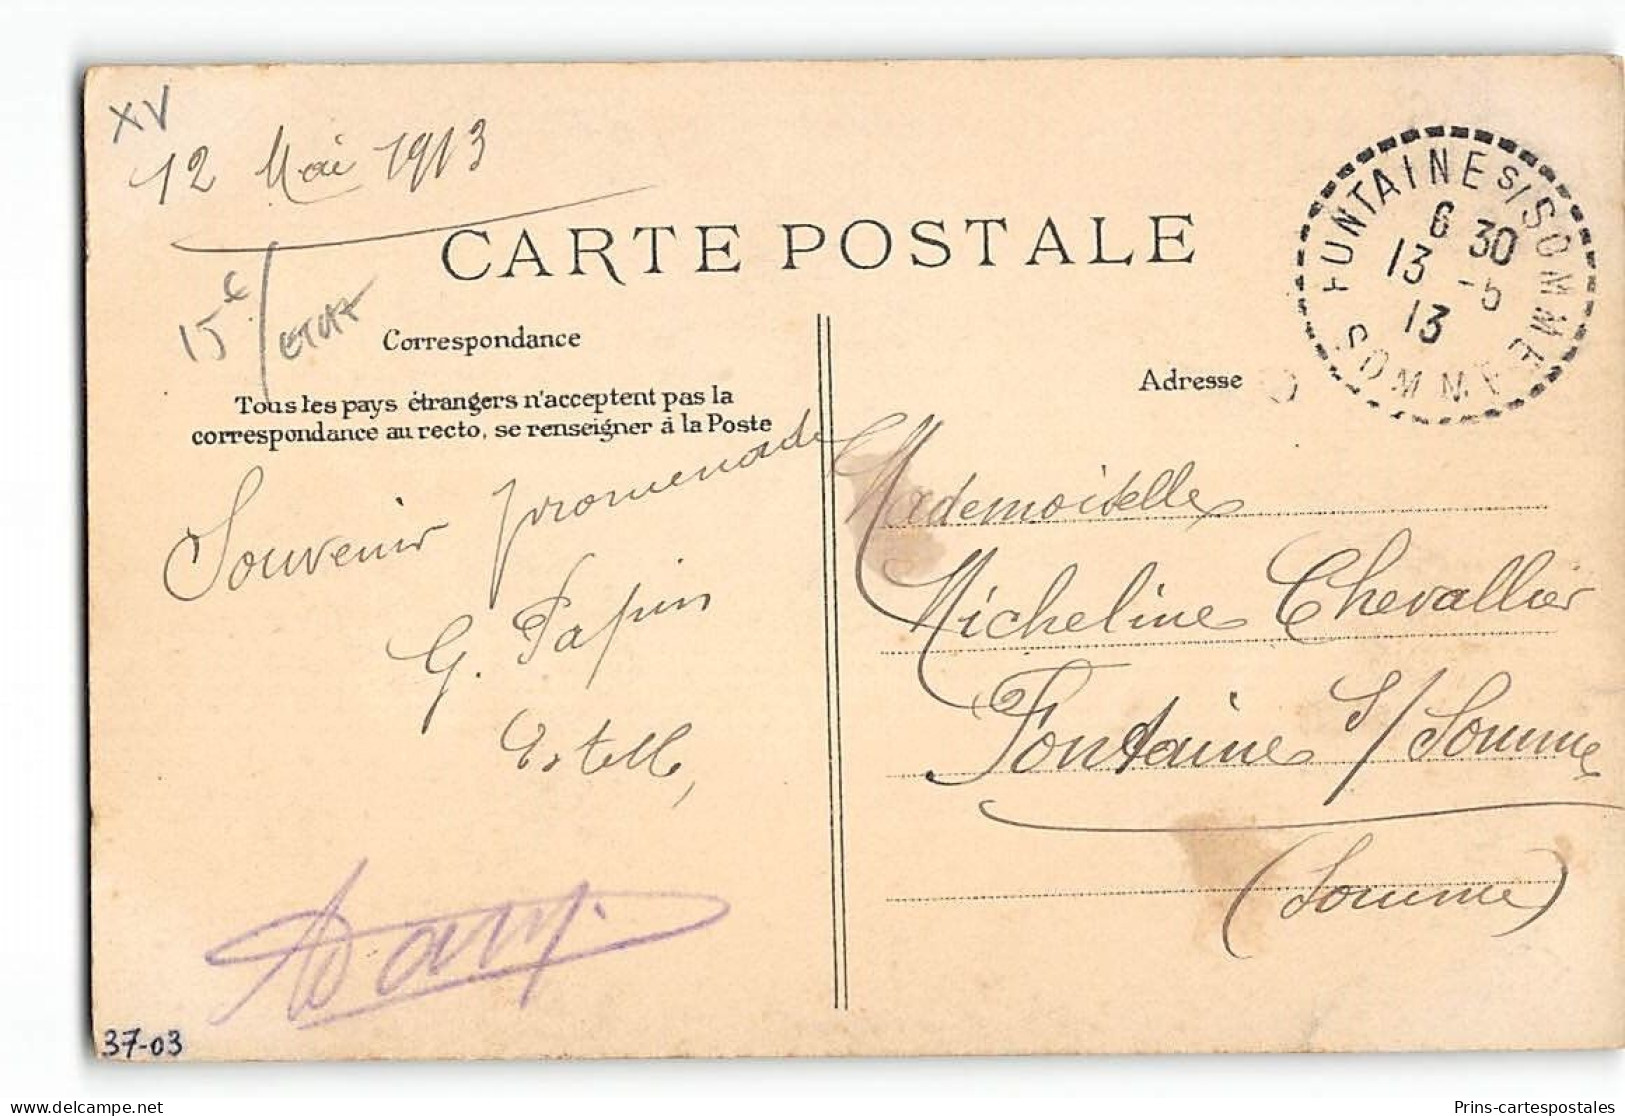 XV
12 Mai 1913
CARTE POSTALE
15e
Correspondance
Tous les pays étrangers n'acceptent pas la
correspondance au recto, se renseigner à la Poste
Souvenir promenade
G. Papin
Estelle,
37-03
FONTAINE S/SOMME
6 30
13 -5
13
SOMME
Adresse
Mademoiselle
Micheline Chevallier
Fontaine s/Somme
(Somme)
Prins-cartespostales